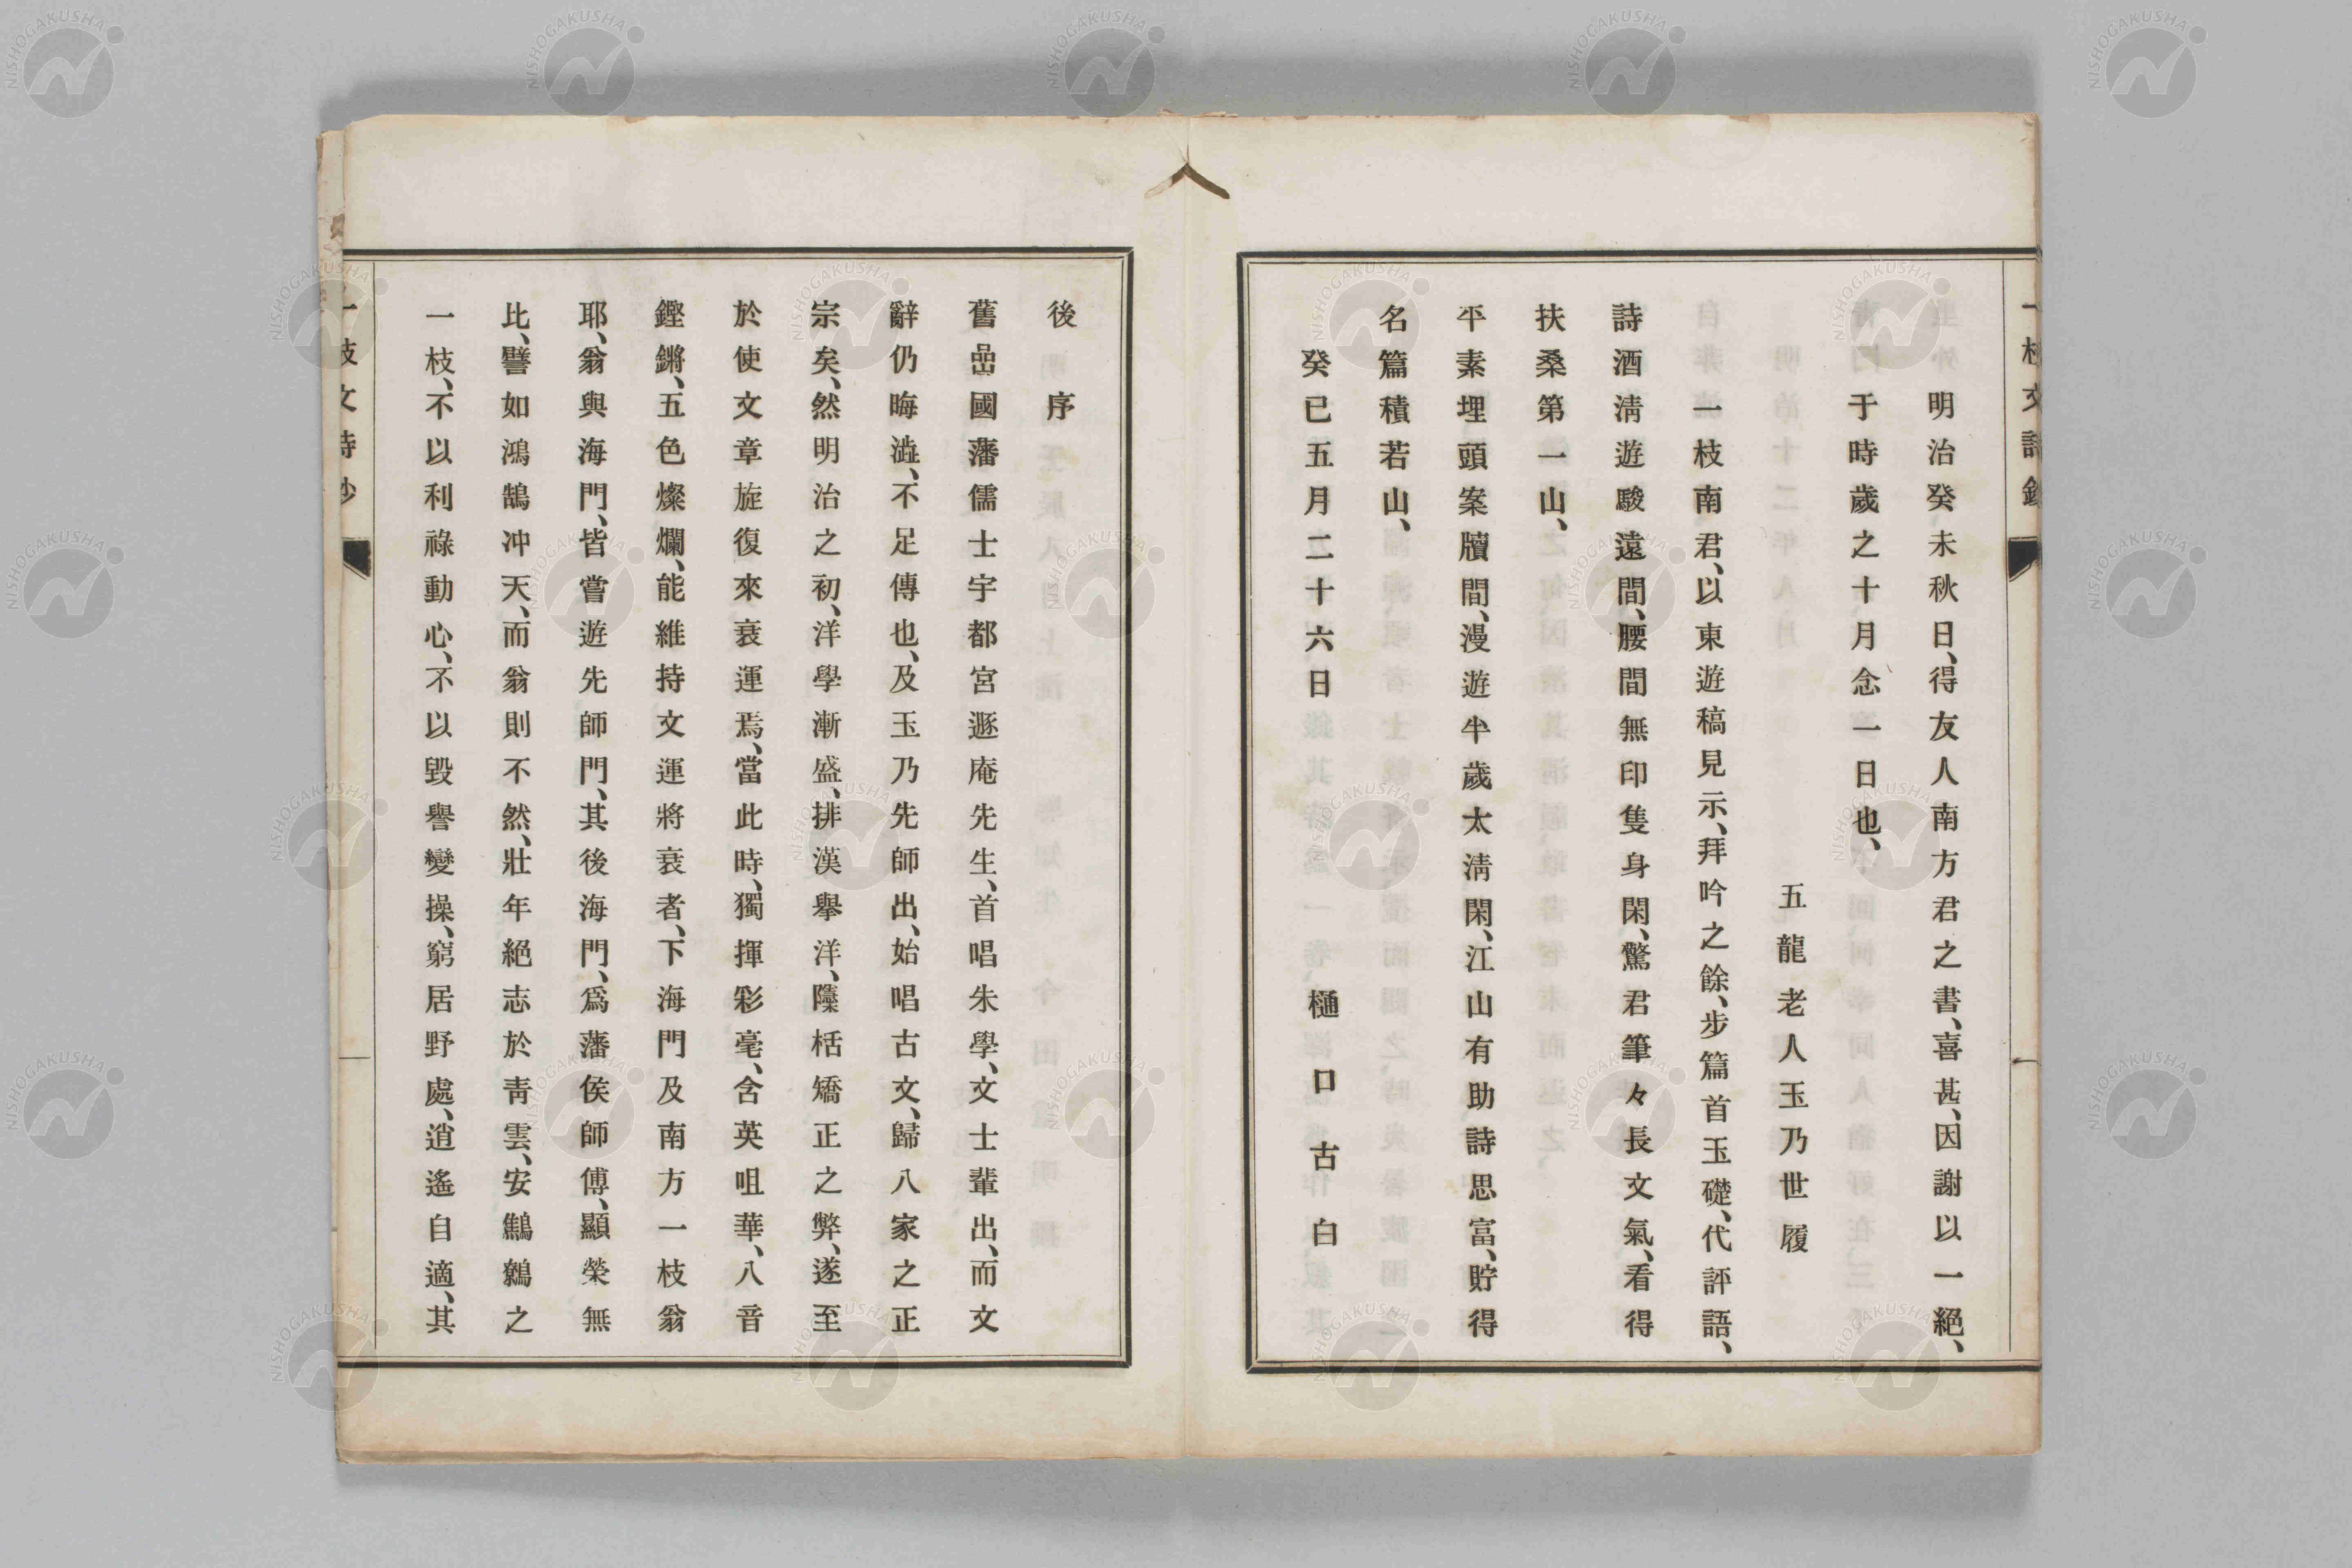 明治癸未秋日、得友人南方君之書、喜甚、因謝以一絕、
于時歲之十月念一日也、
五龍老人玉乃世履
一枝南君、以東遊稿見示、拜吟之餘、步篇首玉礎、代評語、
詩酒淸遊駿遠間、腰間無印隻身閑、驚君筆々長文氣、看得
扶桑第一山、
平素埋頭案牘間、漫遊半歲太淸閑、江山有助詩思富、貯得
名篇積若山、
癸巳五月二十六日 樋口古白
後序
舊嵒國藩儒士宇都宮遯庵先生、首唱朱學、文士輩出、而文
辭仍晦澁、不足傳也、及玉乃先師出、始唱古文、歸八家之正
宗矣、然明治之初、洋學漸盛、排漢擧洋、隱栝矯正之弊、遂至
於使文章旋復來衰運焉、當此時、獨揮彩毫、含英咀華、八音
鏗鏘、五色燦爛、能維持文運將衰者、下海門及南方一枝翁
耶、翁與海門、皆嘗遊先師門、其後海門、爲藩侯師傅、顯榮無
比、譬如鴻鵠冲天、而翁則不然、壯年絕志於靑雲、安鷦鷯之
一枝、不以利祿動心、不以毀譽變操、窮居野處、逍遙自適、其
一枝文詩鈔
NISHOGAKUSHA